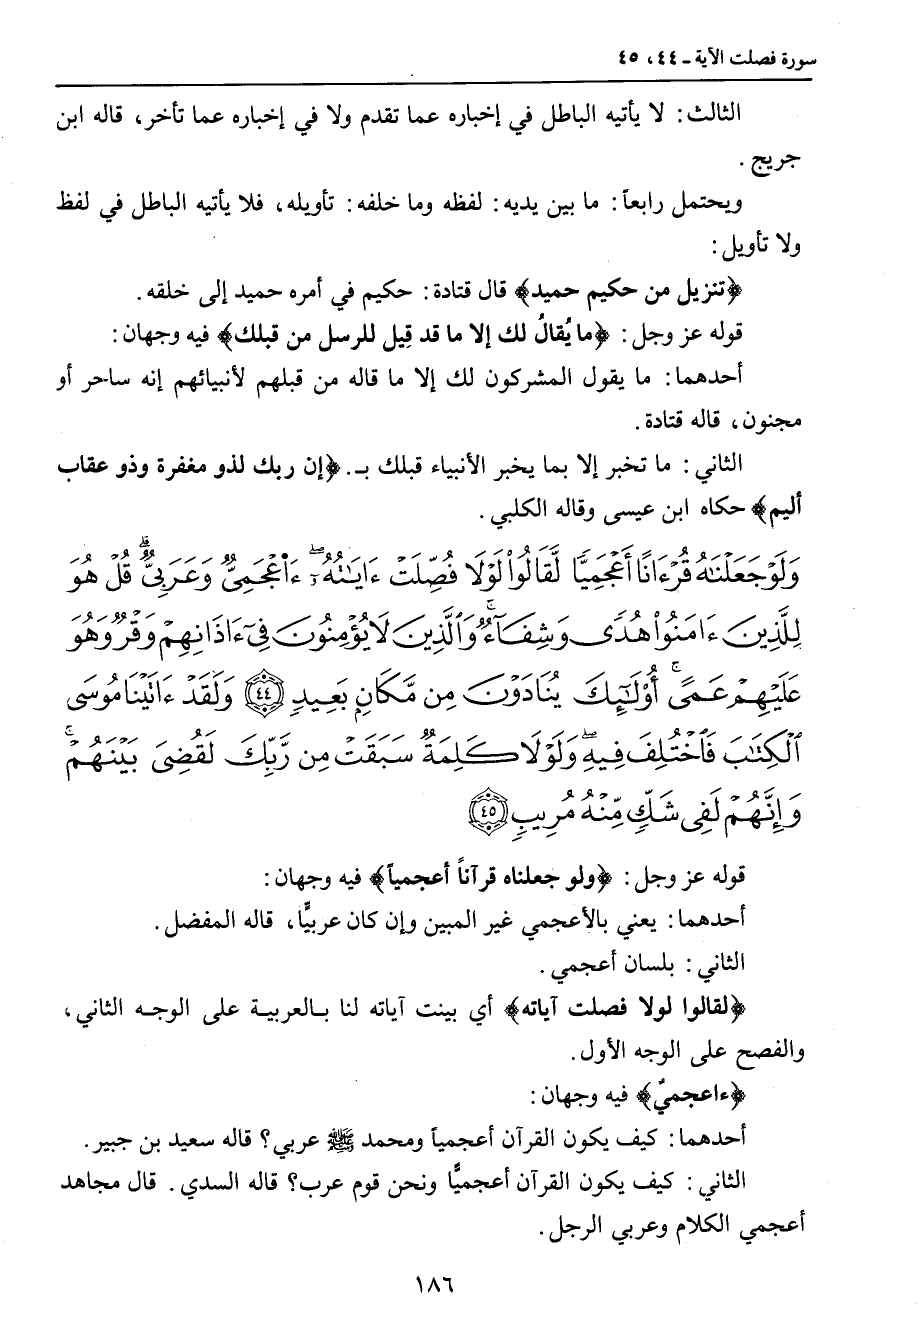 سورة فصلت الآية ـ ٤٤، ٤٥
الثالث: لا يأتيه الباطل في إخباره عما تقدم ولا في إخباره عما تأخر، قاله ابن
جريج.
ويحتمل رابعاً: ما بين يديه: لفظه وما خلفه: تأويله، فلا يأتيه الباطل في لفظ
ولا تأويل:
﴿تنزيل من حكيم حميد﴾ قال قتادة: حكيم في أمره حميد إلى خلقه.
قوله عز وجل: ﴿ما يُقالُ لك إلا ما قد قِيل للرسل من قبلك﴾ فيه وجهان:
أحدهما: ما يقول المشركون لك إلا ما قاله من قبلهم لأنبيائهم إنه ساحر أو
مجنون، قاله قتادة.
الثاني: ما تخبر إلا بما يخبر الأنبياء قبلك بـ. ﴿إن ربك لذو مغفرة وذو عقاب
أليم﴾ حكاه ابن عيسى وقاله الكلبي.
وَلَوْ جَعَلْنَٰهُ قُرْءَانًا أَعْجَمِيًّا لَّقَالُوا۟ لَوْلَا فُصِّلَتْ ءَايَٰتُهُۥٓ ۖ ءَا۬عْجَمِىٌّ وَعَرَبِىٌّ ۗ قُلْ هُوَ
لِلَّذِينَ ءَامَنُوا۟ هُدًى وَشِفَآءٌ ۚ وَٱلَّذِينَ لَا يُؤْمِنُونَ فِىٓ ءَاذَانِهِمْ وَقْرٌ وَهُوَ
عَلَيْهِمْ عَمًى ۚ أُو۟لَٰٓئِكَ يُنَادَوْنَ مِن مَّكَانٍۭ بَعِيدٍ ٤٤ وَلَقَدْ ءَاتَيْنَا مُوسَى
ٱلْكِتَٰبَ فَٱخْتُلِفَ فِيهِ ۗ وَلَوْلَا كَلِمَةٌ سَبَقَتْ مِن رَّبِّكَ لَقُضِىَ بَيْنَهُمْ ۚ
وَإِنَّهُمْ لَفِى شَكٍّ مِّنْهُ مُرِيبٍ ٤٥
قوله عز وجل: ﴿ولو جعلناه قرآناً أعجمياً﴾ فيه وجهان:
أحدهما: يعني بالأعجمي غير المبين وإن كان عربيًّا، قاله المفضل.
الثاني: بلسان أعجمي.
﴿لقالوا لولا فصلت آياته﴾ أي بينت آياته لنا بالعربية على الوجه الثاني،
والفصح على الوجه الأول.
﴿ءاعجميٌ﴾ فيه وجهان:
أحدهما: كيف يكون القرآن أعجمياً ومحمد ﷺ عربي؟ قاله سعيد بن جبير.
الثاني: كيف يكون القرآن أعجميًّا ونحن قوم عرب؟ قاله السدي. قال مجاهد
أعجمي الكلام وعربي الرجل.
١٨٦